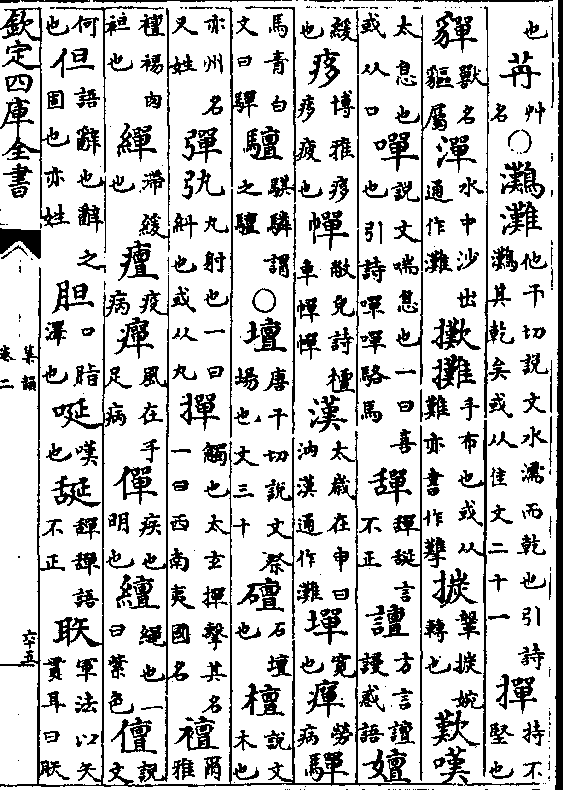 也苒艸名○灘灘他干切說文水濡而乾也引詩灘其乾矣或从隹文二十一撣持不堅也
貚獸名貙屬潬水中沙出通作灘擹攤手布也或从難亦書作㩅掞擊掞婉轉也歎嘆
太息也或从口嘽說文喘息也一曰喜也引詩嘽嘽駱馬𦧴𦧴𦧧言不正譠方言譠謾欺語嬗
緩也痑博雅痑痑疲也幝敝皃詩檀車幝幝漢太歲在申曰汭漢通作灘墠寬也癉勞病驒
馬青白文曰驒驙騏驎謂之驙○壇唐干切說文祭場也文三十䃪石壇也檀說文木也
亦州名又姓彈㢭丸射也一曰糾也或从丸撣觸也太玄撣擊其名一曰西南夷國名襢爾雅
襢裼肉袒也繟滯緩也癉疫病癉風在手足病僤疾也明也繵繩也一曰紫色儃說文
何也但語辭也辭之固也亦姓胆口脂澤也唌嘆也𦧧𦧴𦧴語不正䏮軍法以矢貫耳曰䏮
欽定四庫全書
集韻
卷二
六十五